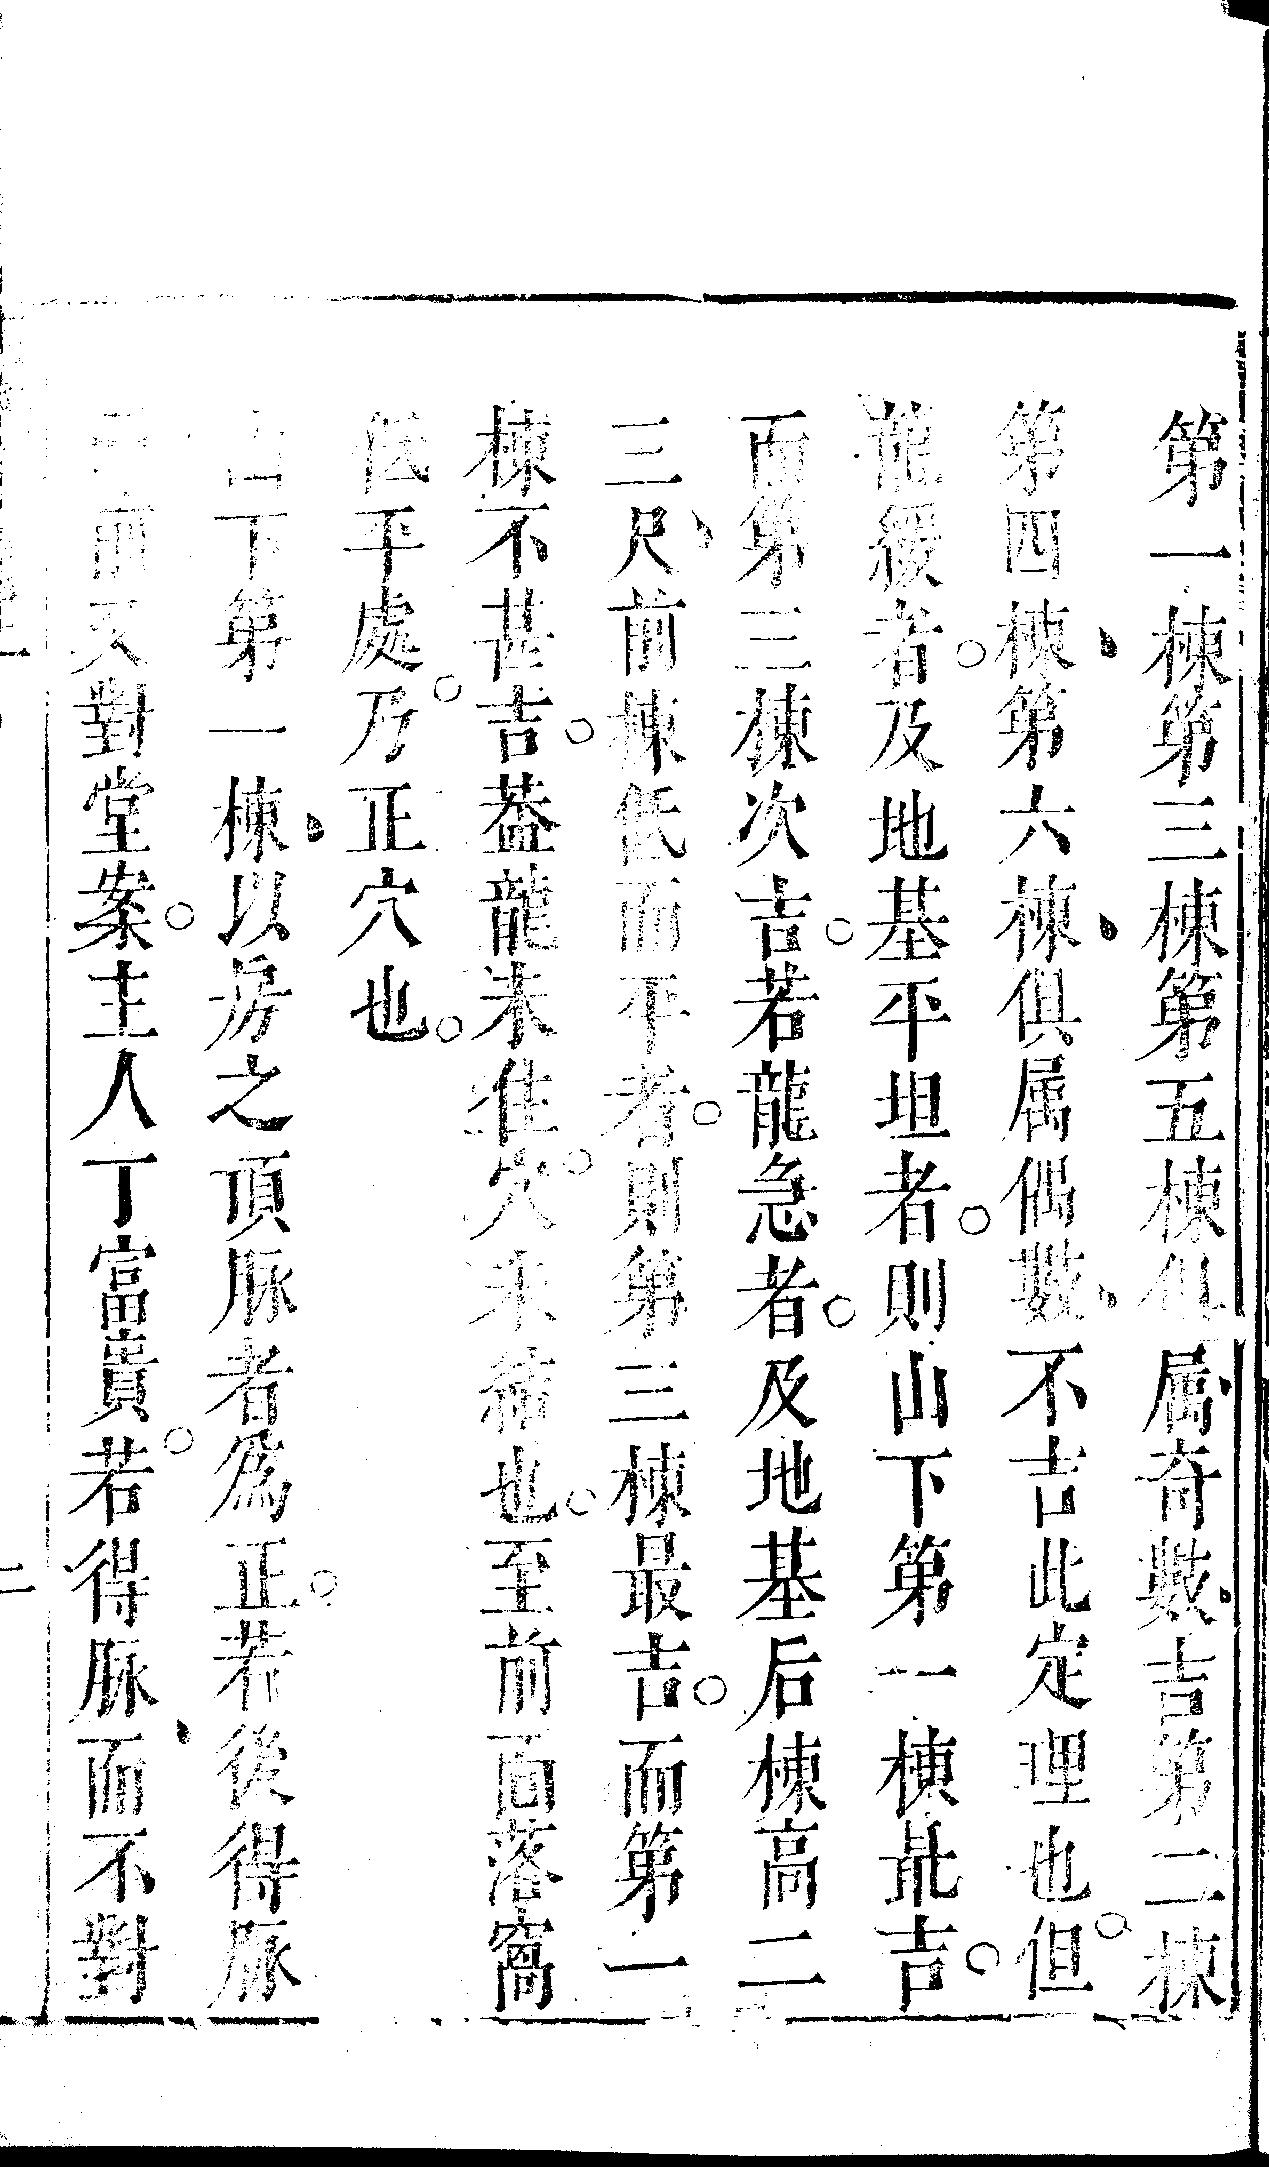 第一棟第三棟第五棟俱属、奇數、吉第二棟
第四棟、第六棟、俱属偶數、不吉此定理也。但
龍緩者。及地基平坦者。則山下第一棟最吉。
而第三棟次吉。若龍急者。及地基后棟高二
三尺、前棟低而平者。則第三棟最吉。而第一
棟不甚吉。葢龍未住穴。未結也。至前面落窩
低平處。乃正穴也。
下第一棟、以房之頂脉者爲正。若後得脉
前又對堂案。主人丁富貴。若得脉、而不對